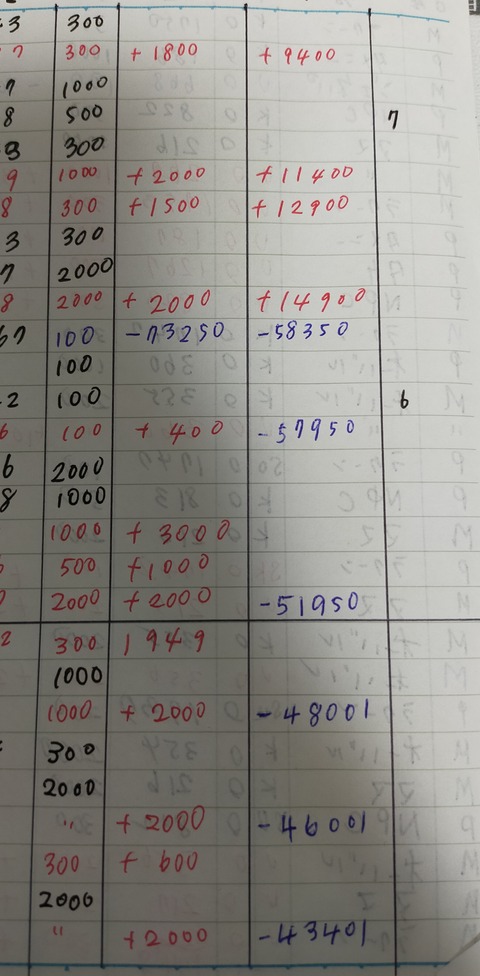 3 300
7 300 +1800 +9400
7 1000
8 500 7
3 300
9 1000 +2000 +11400
8 300 +1500 +12900
3 300
7 2000
8 2000 +2000 +14900
67 100 -73250 -58350
100
2 100 6
6 100 +400 -57950
6 2000
8 1000
1000 +3000
500 +1000
2000 +2000 -51950
2 300 1949
1000
1000 +2000 -48001
300
2000
" +2000 -46001
300 +600
2000
" +2000 -43401